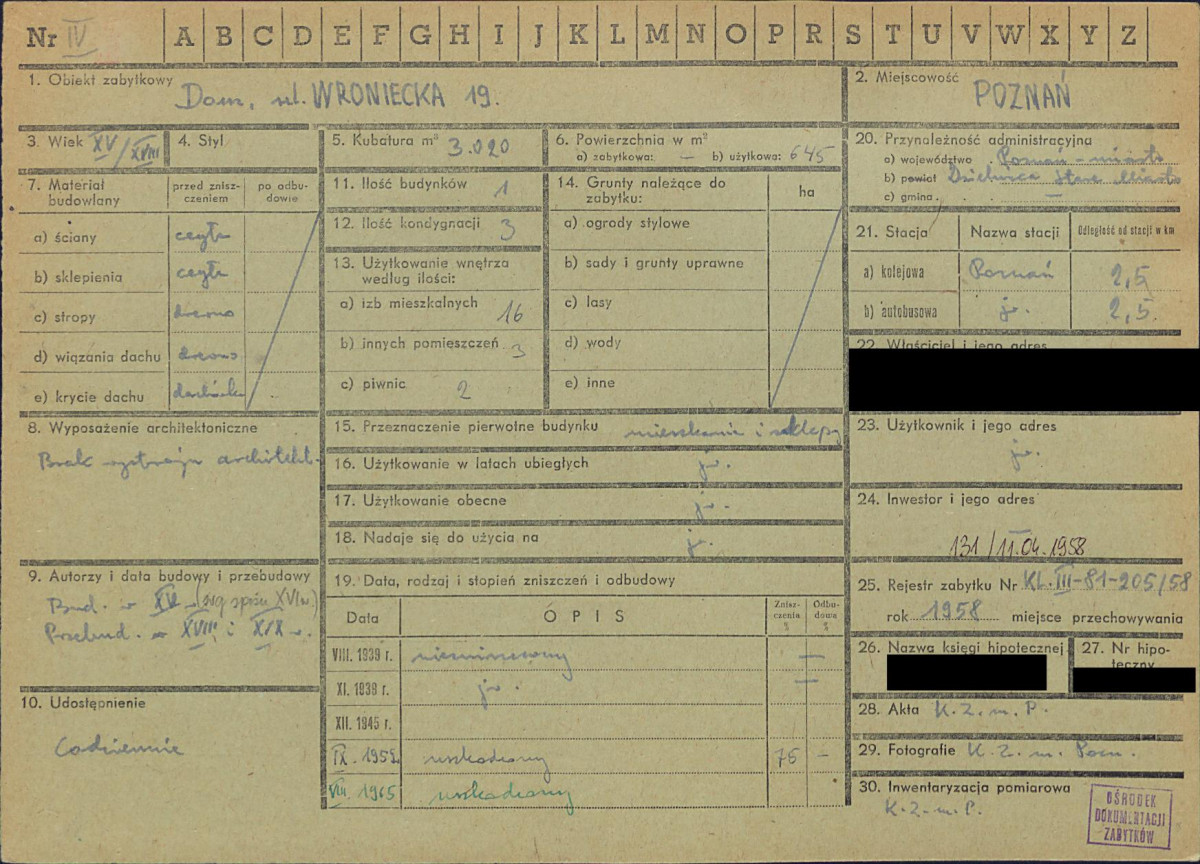 Nr IV A B C D E F G H I J K L M N O P R S T U V W X Y Z
1. Obiekt zabytkowy Dom, ul. WRONIECKA 19.
2. Miejscowość POZNAŃ
3. Wiek XV/XVIII
4. Styl
5. Kubatura m³ 3.020
6. Powierzchnia w m²
a) zabytkowa: — b) użytkowa: 645
20. Przynależność administracyjna
a) województwo Poznań - miasto
b) powiat Dzielnica Stare Miasto
c) gmina. —
7. Materiał budowlany
przed zniszczeniem
po odbudowie
a) ściany cegła
b) sklepienia cegła
c) stropy drewno
d) wiązania dachu drewno
e) krycie dachu dachówka
11. Ilość budynków 1
12. Ilość kondygnacji 3
13. Użytkowanie wnętrza
według ilości:
a) izb mieszkalnych 16
b) innych pomieszczeń 3
c) piwnic 2
14. Grunty należące do
zabytku:
ha
a) ogrody stylowe
b) sady i grunty uprawne
c) lasy
d) wody
e) inne
21. Stacja Nazwa stacji Odległość od stacji w km
a) kolejowa Poznań 2,5
b) autobusowa jw. 2,5.
22. Właściciel i jego adres
8. Wyposażenie architektoniczne
Brak wystroju architekt.
15. Przeznaczenie pierwotne budynku mieszkanie i sklepy
16. Użytkowanie w latach ubiegłych jw.
17. Użytkowanie obecne jw.
18. Nadaje się do użycia na jw.
23. Użytkownik i jego adres
jw.
24. Inwestor i jego adres
131/11.04.1958
9. Autorzy i data budowy i przebudowy
Bud. w XV (wg spisu XVI w.)
Przebud. w XVIII i XIX w.
19. Data, rodzaj i stopień zniszczeń i odbudowy
Data OPIS Zniszczenia % Odbudowa %
VIII. 1939 r. niezniszczony —
XI. 1938 r. jw. —
XII. 1945 r.
IX. 1959. uszkodzony 75 —
VIII. 1965 uszkodzony
25. Rejestr zabytku Nr KL.III-81-205/58
rok 1958 miejsce przechowywania
26. Nazwa księgi hipotecznej
27. Nr hipoteczny
10. Udostępnienie
Codziennie
28. Akta K. Z. m. P.
29. Fotografie K. Z. m. Pozn.
30. Inwentaryzacja pomiarowa
K. Z. m. P.
OŚRODEK
DOKUMENTACJI
ZABYTKÓW